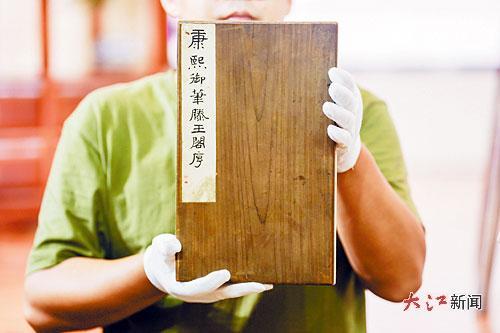 康熙御筆滕王閣序
大江新闻